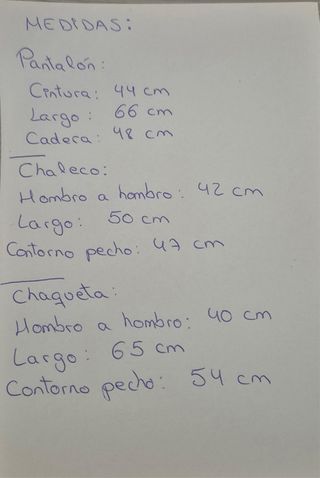 MEDIDAS:
Pantalón:
Cintura: 44 cm
Largo: 66 cm
Cadera: 48 cm
Chaleco:
Hombro a hombro: 42 cm
Largo: 50 cm
Contorno pecho: 47 cm
Chaqueta:
Hombro a hombro: 40 cm
Largo: 65 cm
Contorno pecho: 54 cm